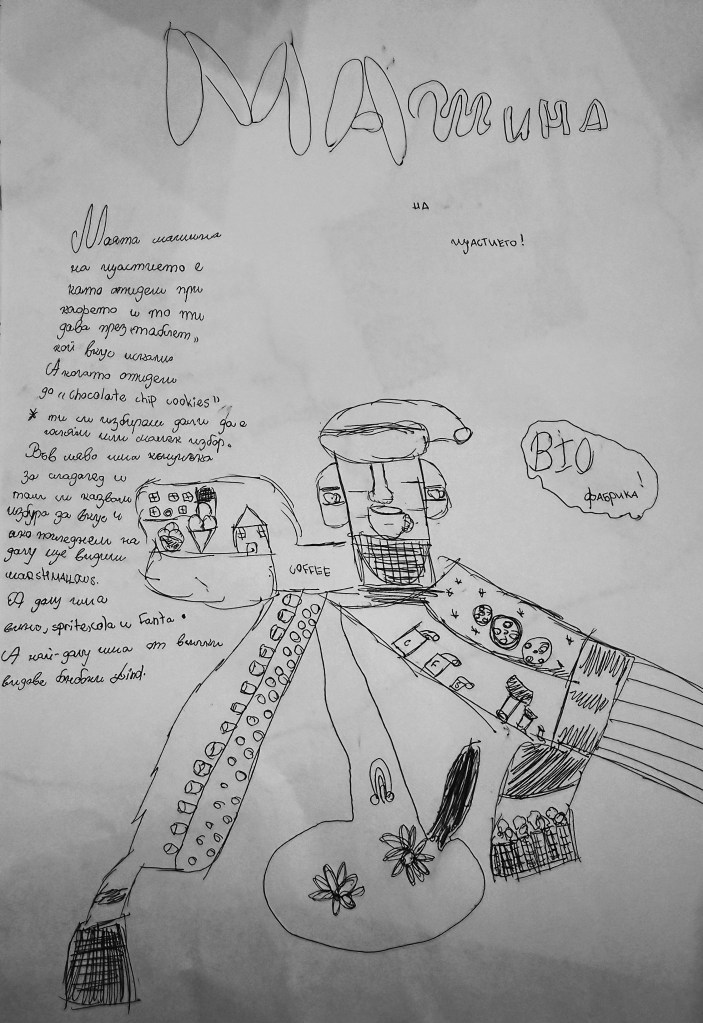 МАШИНА
НА
ЩАСТИЕТО!
Моята машина
на щастието е
като отидеш при
кафето и то ти
дава през "таблет"
кой вкус искаш
А когато отидеш
до "chocolate chip cookies"
* ти си избираш дали да е
голям или малък избор.
Във ляво има
за сладолед и
там си казваш
избора за вкус и
ако погледнеш на
долу ще видиш
MARSHMALLOWS.
А долу има
вино, sprite, кола и Fanta.
А най-долу има от всички
видове бонбони Lind.
COFFEE
BIO
ФАБРИКА!